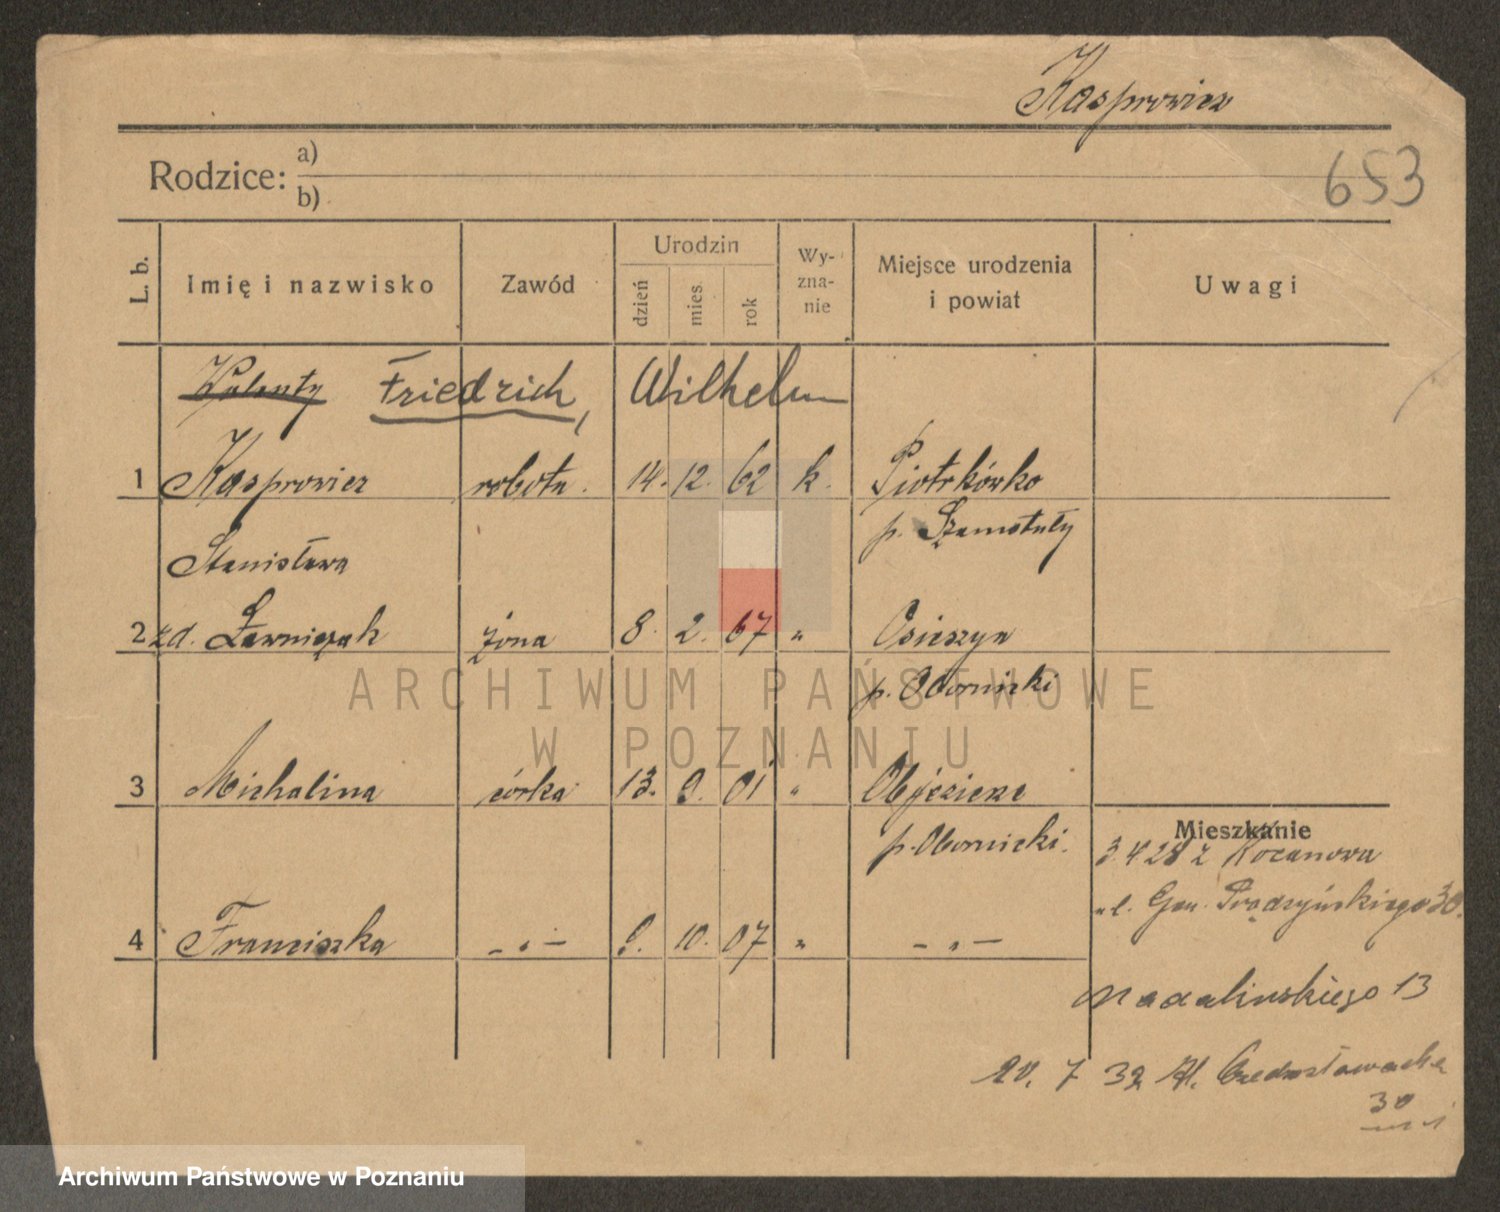 Kasprowicz
653
Rodzice: a)
b)
L. b. Imię i nazwisko Zawód Urodzin dzień mies. rok Wyznanie Miejsce urodzenia i powiat Uwagi
Walenty Friedrich, Wilhelm
1 Kasprowicz robotn. 14. 12. 62 k. Piotrkówko
p. Szamotuły
Stanisława
2 zd. Ławniczak żona 8. 2. 67 " Osieszyn
p. Obornicki
3 Michalina córka 13. 9. 01 " Objezierze
p. Obornicki.
Mieszkanie
3.4.28 z Kocanowa
ul. Gen. Prądzyńskiego 30.
4 Franciszka - " - 9. 10. 07 " - " -
Madalinskiego 13
20. 7 32
30
ARCHIWUM PAŃSTWOWE
W POZNANIU
Archiwum Państwowe w Poznaniu